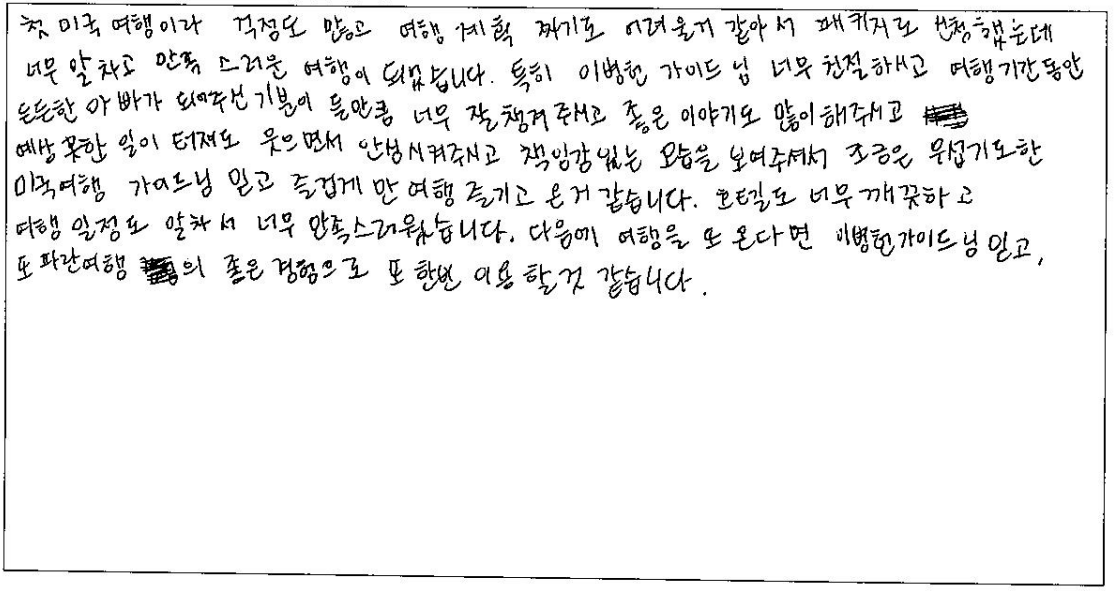 첫 미국 여행이라 걱정도 많고 여행 계획 짜기도 어려울거 같아서 패키지로 신청했는데
너무 알차고 만족 스러운 여행이 되었습니다. 특히 이병헌 가이드님 너무 친절하시고 여행기간동안
든든한 아빠가 되어주신 기분이 들만큼 너무 잘챙겨주시고 좋은 이야기도 많이해주시고
예상 못한 일이 터져도 웃으면서 안심시켜주시고 책임감있는 모습을 보여주셔서 조금은 무섭기도한
미국여행 가이드님 믿고 즐겁게 만 여행 즐기고 온거 같습니다. 호텔도 너무 깨끗하고
여행 일정도 알차서 너무 만족스러웠습니다. 다음에 여행을 또 온다면 이병헌가이드님 믿고,
또 파란여행 의 좋은 경험으로 또 한번 이용 할것 같습니다.